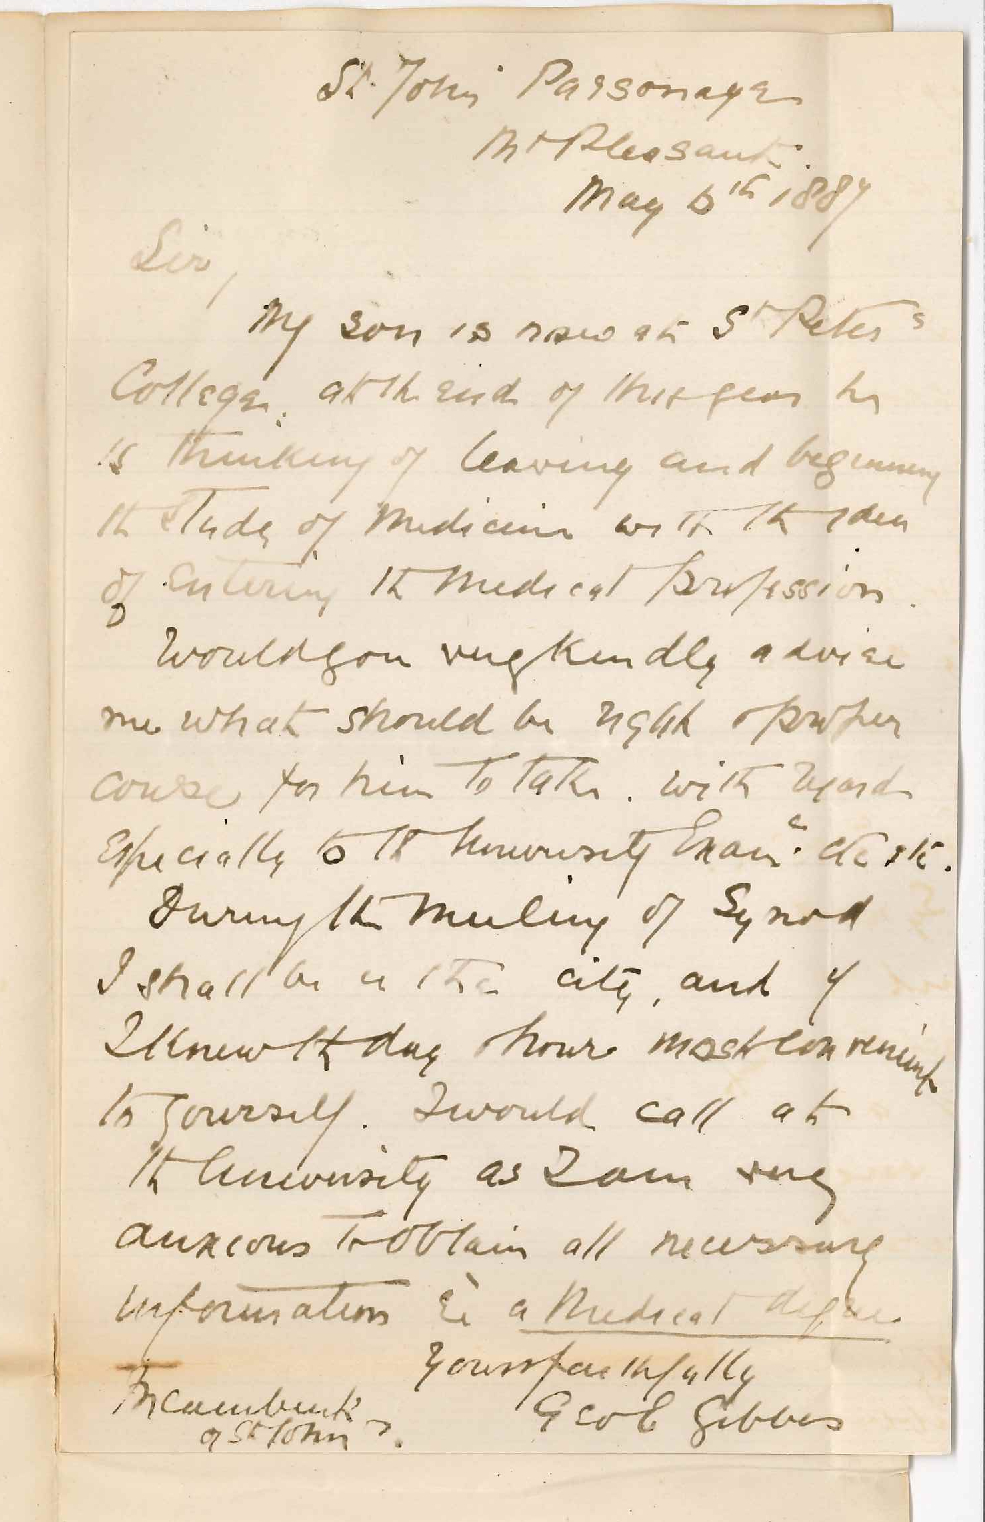 St. John's Parsonage
Mt Pleasant.
May 5th 1887
Sir,
My son is now at St Peter's
College. at the end of this year he
is thinking of leaving and beginning
the study of Medicine with the idea
of entering the Medical profession.
Would you very kindly advise
me what should be right & proper
course for him to take. with regard
especially to the University Exam etc etc.
During the meeting of Synod
I shall be in the city, and if
I knew the day & hour most convenient
to yourself. I would call at
the University as I am very
anxious to obtain all necessary
information re a Medical degree.
Yours faithfully
Incumbent Geo E Gibbes
of St John's.